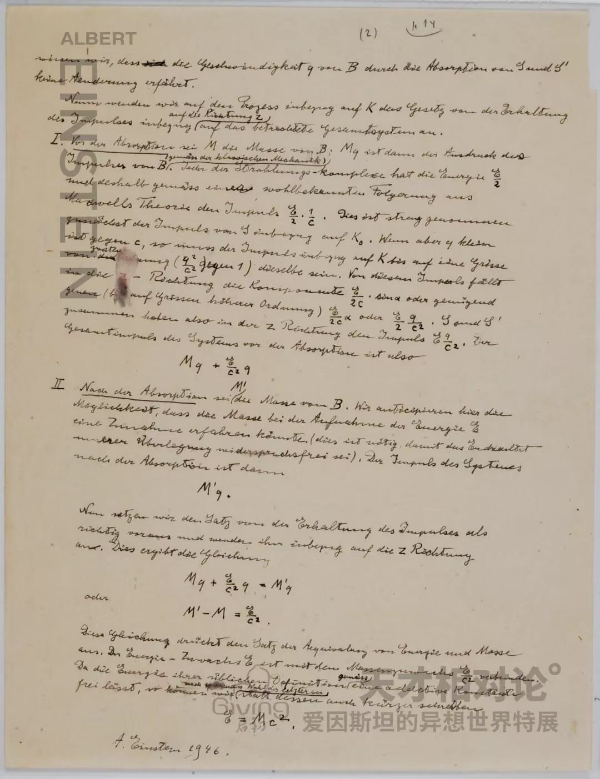 (2)
ALBERT
EINSTEIN
wissen wir, dass die Geschwindigkeit q von B durch die Absorption von S und S'
keine Aenderung erfährt.
Nunn wenden wir auf den Prozess inbezug auf K das Gesetz von der Erhaltung
des Impulses inbezug auf die Richtung z auf das betrachtete Gesamtsystem an.
I. Vor der Absorption sei M die Masse von B. Mq ist dann der Ausdruck des
Impulses von B (gemäss der klassischen Mechanik). Jeder der Strahlungs-Komplexe hat die Energie E/2
und deshalb gemäss einer wohlbekannten Folgerung aus
Maxwells Theorie den Impuls E/2 · 1/c. Dies ist streng genommen
zunächst der Impuls von S inbezug auf K₀. Wenn aber q klein
ist gegen c, so muss der Impuls inbezug auf K bis auf eine Grösse
von (q²/c² gegen 1) dieselbe sein. Von diesem Impuls fällt
in die - Richtung die Komponente E/2c · sin α oder genügend
genau (bis auf Grössen höherer Ordnung) E/2c α oder E/2 q/c². S und S'
zusammen haben also in der z Richtung den Impuls E q/c². Der
Gesamtimpuls des Systems vor der Absorption ist also
Mq + E/c² q
II. Nach der Absorption sei M' die Masse von B. Wir anticipieren hier die
Möglichkeit, dass die Masse bei der Aufnahme der Energie E
eine Zunahme erfahren könnte (dies ist nötig, damit das Endresultat
unserer Überlegung widerspruchsfrei sei). Der Impuls des Systems
nach der Absorption ist dann
M'q.
Nun setzen wir den Satz von der Erhaltung des Impulses als
richtig voraus und wenden ihn inbezug auf die z Richtung
an. Dies ergibt die Gleichung
Mq + E/c² q = M'q
oder
M' - M = E/c².
Diese Gleichung drückt den Satz der Aequivalenz von Energie und Masse
aus. Der Energie-Zuwachs E ist mit dem Massenzuwachs E/c² verbunden.
Da die Energie ihrer üblichen Definition gemäss eine additive Konstante
frei lässt, so können wir statt dessen auch kürzer schreiben
E = Mc².
A. Einstein 1946.
天才相对论
爱因斯坦的异想世界特展